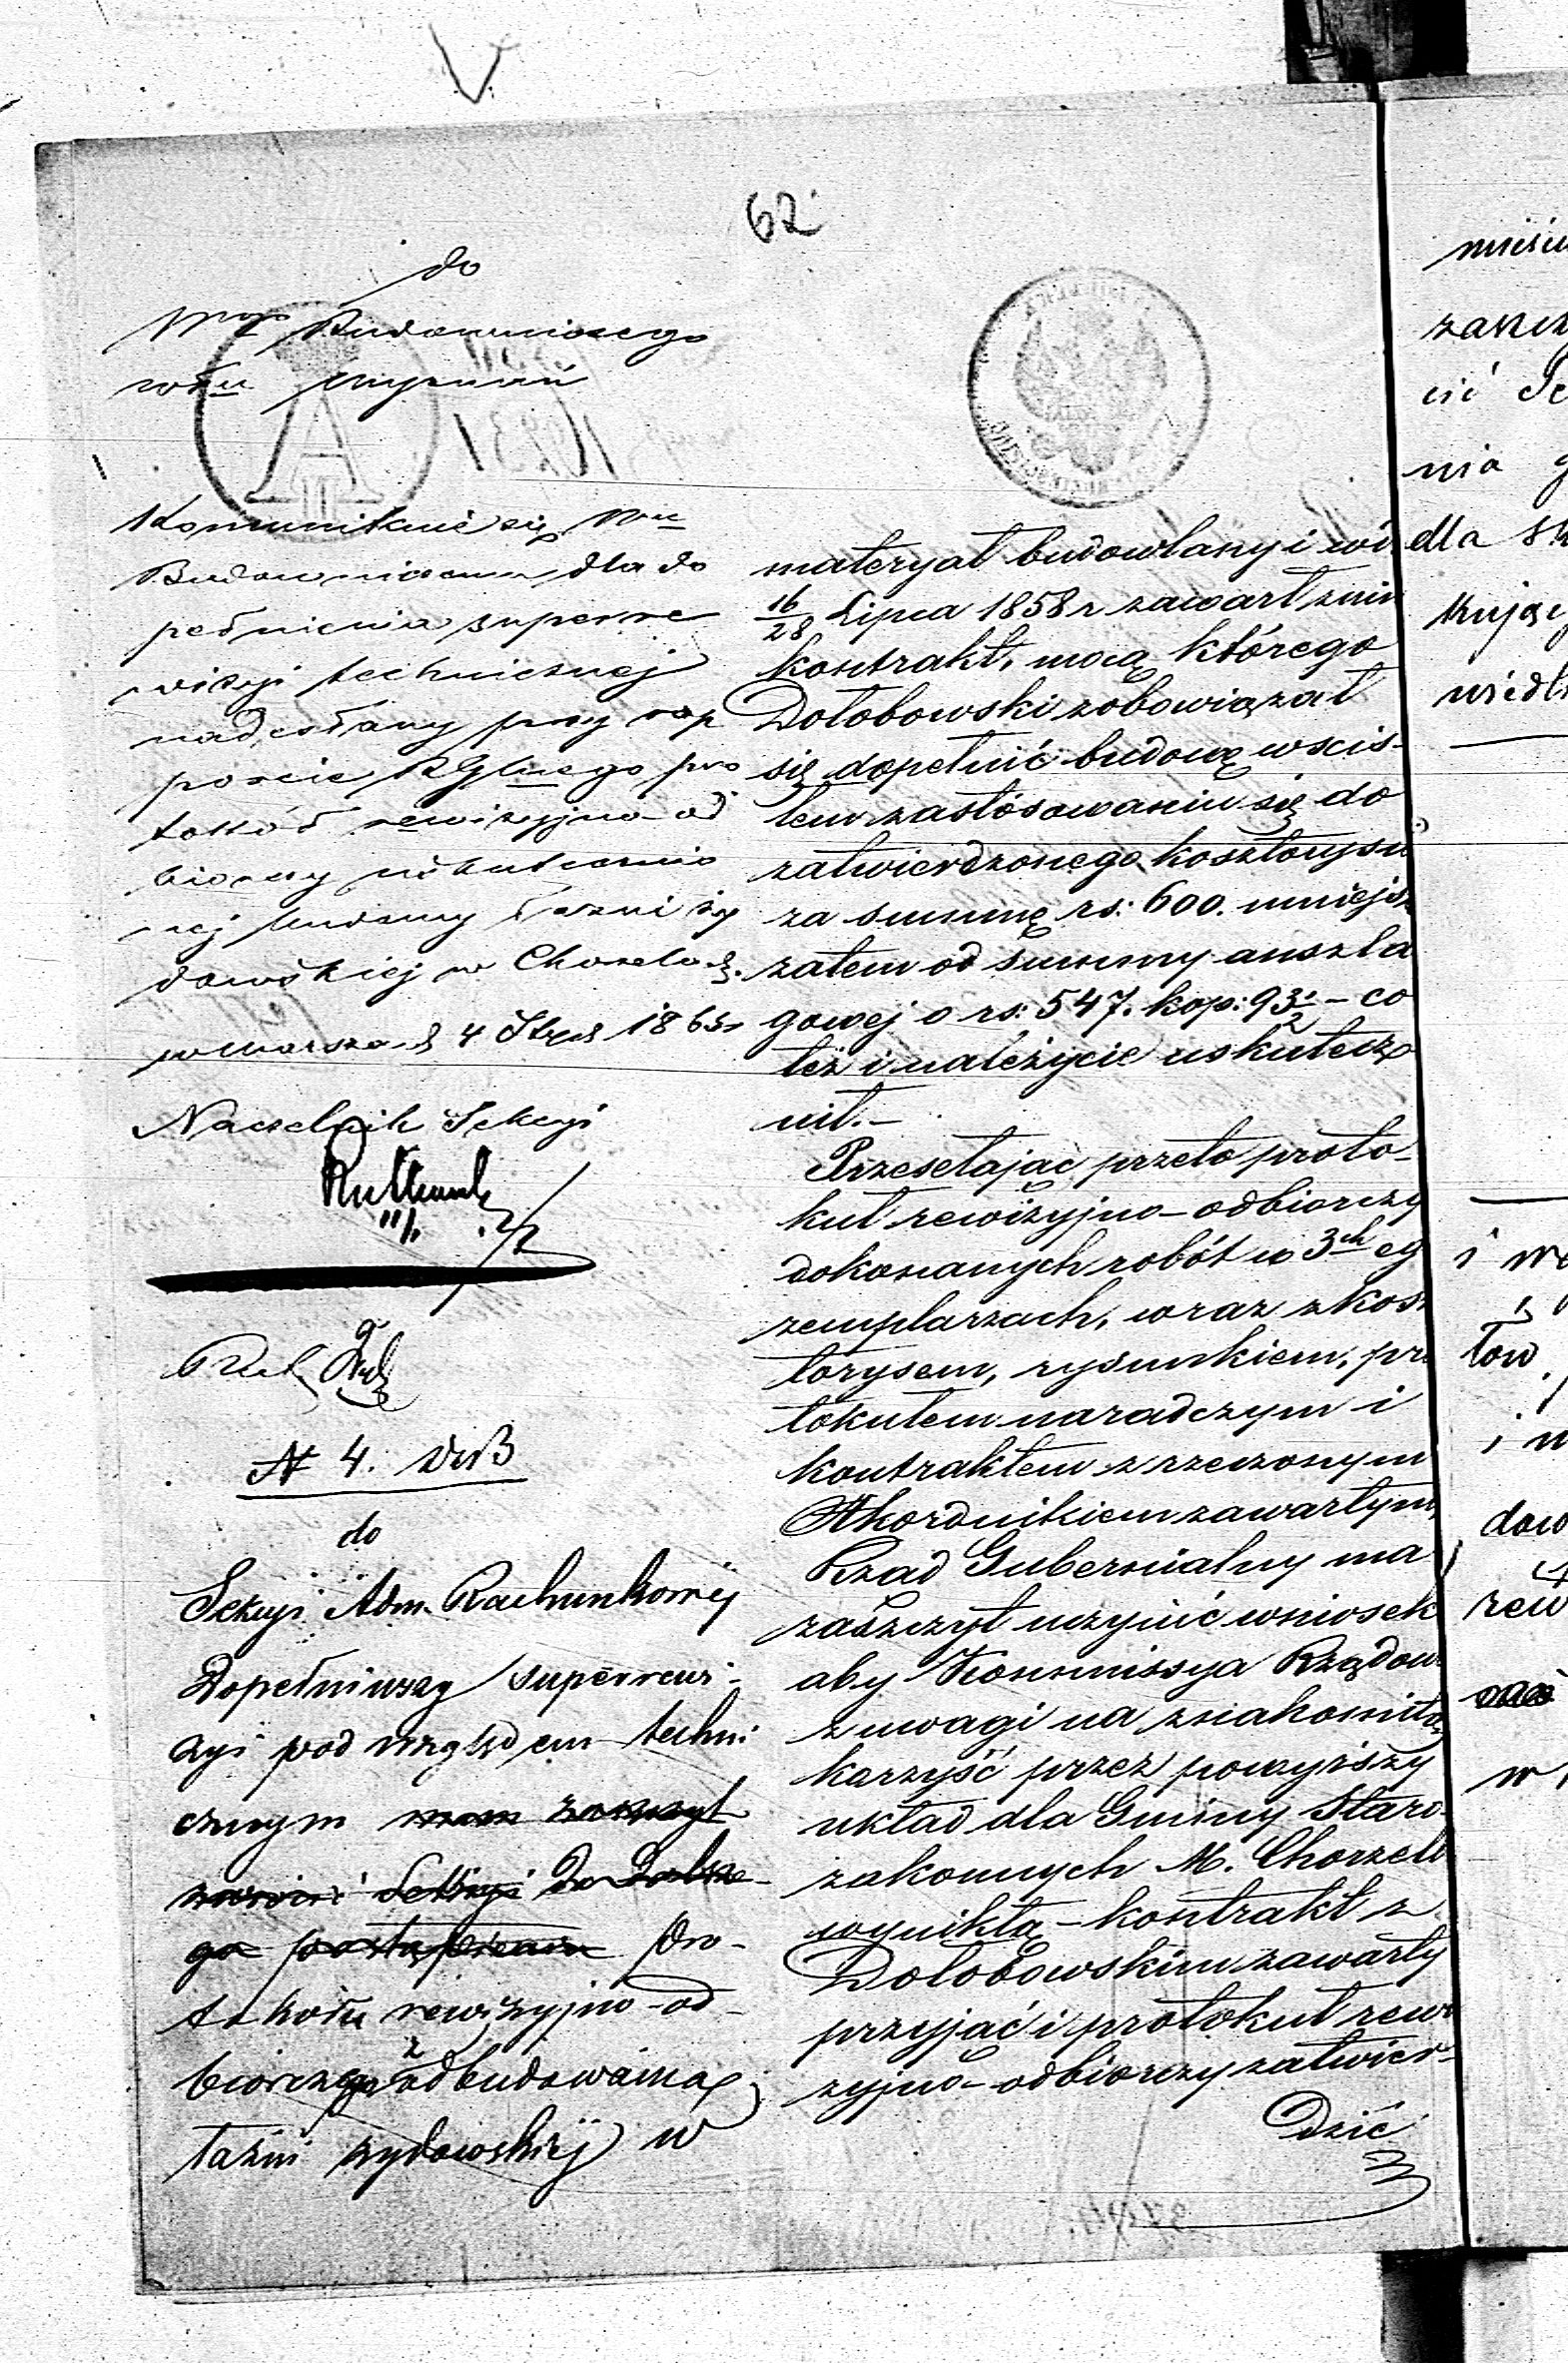 62
do
Budowniczego
Komunikuie się Wu
Budowniczemu dla do
pełnienia superre
wizyi techniczney
nadesłany przy rap
porcie RGlnego pro
tokół rewizyjno-od
biorczy uskutecznio
nej budowy łazni ży
dowskiej w Chorzelach.
w Warsza. d 4 1865
Naczelnik Sekcyi
N 4.
do
Sekcyi Adm. Rachunkowej
Dopełniwszy superrewi-
zyi pod względem techni
cznym mam zaszczyt
zwrócić Sekcyi do dalsze-
go postąpienia pro-
tokółu rewizyjno-od-
biorczego z odbudowania
łaźni żydowskiej w
materyał budowlany i w d.
16/28 Lipca 1858 r zawarł z nim
kontrakt, mocą którego
Dołobowski zobowiązał
się dopełnić budowę w scis-
łem zastósowaniu się do
zatwierdzonego kosztorysu
za summę rs: 600. mniejszą
zatem od summy anszla
gowej o rs: 547. kop: 93½ – co
też i należycie uskutecz
nił.–
Przesełając przeto proto-
kuł rewizyjno-odbiorczy
dokonanych robót w 3ch eg
zemplarzach, wraz z kosz
torysem, rysunkiem, pro
tokułem naradczym i
kontraktem z rzeczonym
Akordnikiem zawartym,
Rząd Gubernialny ma
zaszczyt uczynić wniosek
aby Kommissya Rządowa
z uwagi na znakomitą
korzyść przez powyższy
układ dla Gminy Staro-
zakonnych M. Chorzell
wynikłą – kontrakt z
Dołobowskim zawarty
przyjąć i protokuł rewi
zyjno-odbiorczy zatwier-
dzić
zaszcz
nia
dla
kując
i
tów
dow
rew
w